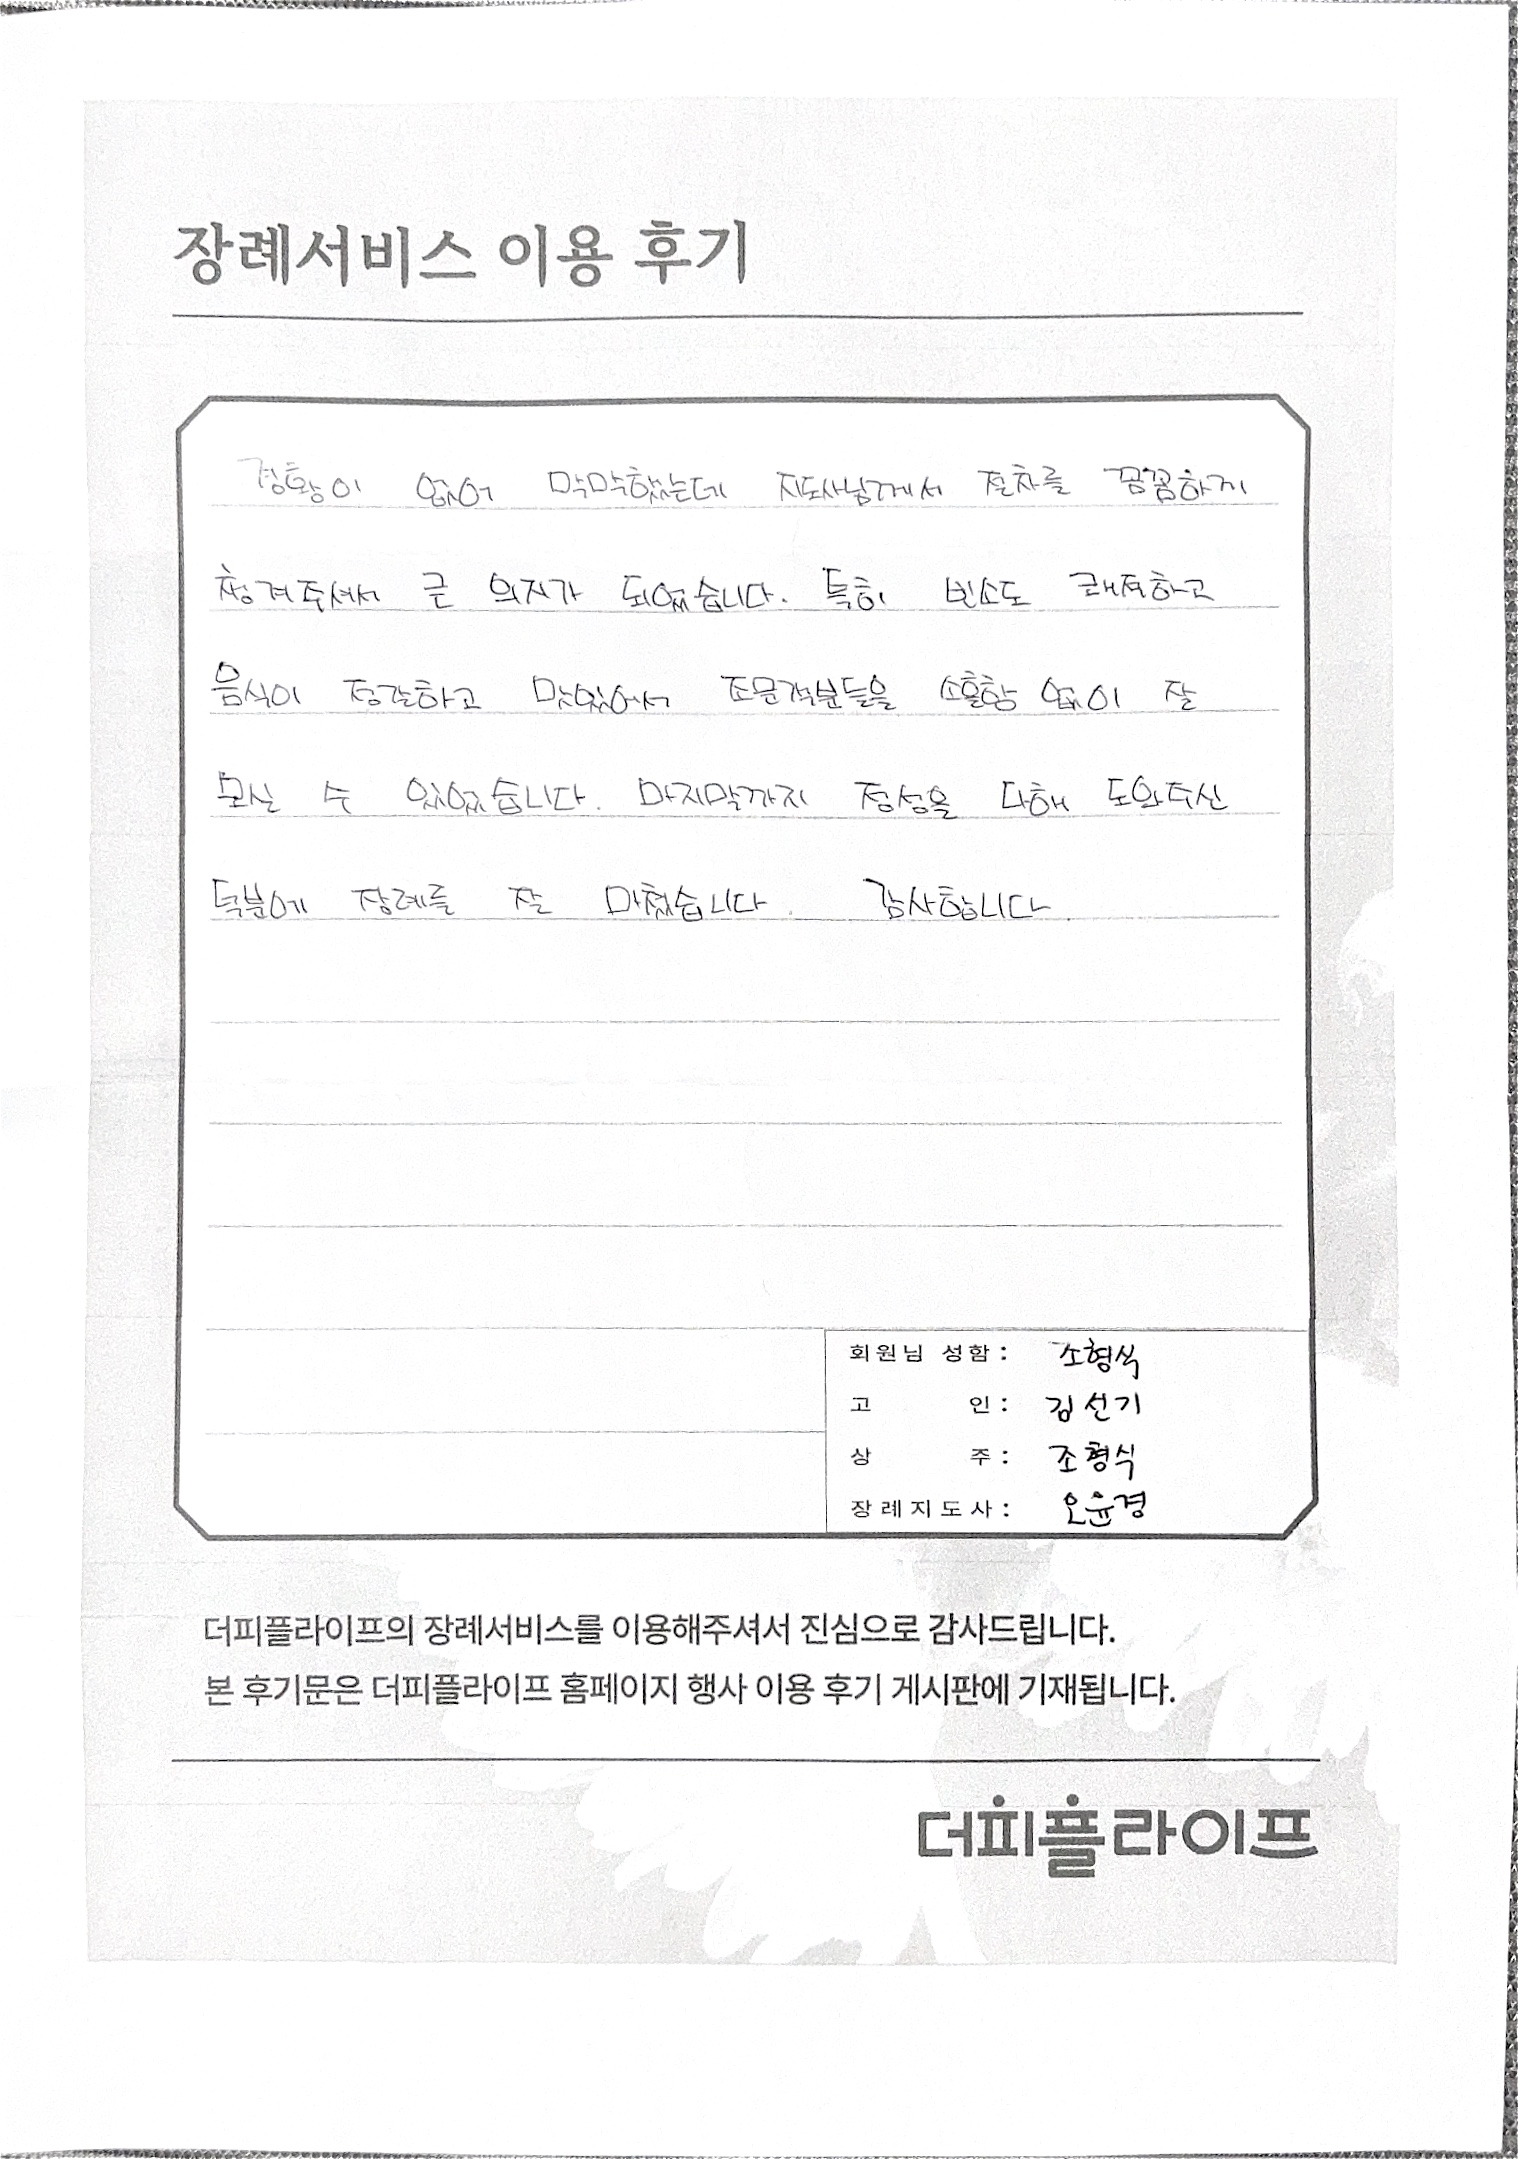 장례서비스 이용 후기
경황이 없어 막막했는데 지도사님께서 절차를 꼼꼼하게
챙겨주셔서 큰 의지가 되었습니다. 특히 빈소도 쾌적하고
음식이 정갈하고 맛있어서 조문객분들을 소홀함 없이 잘
모실 수 있었습니다. 마지막까지 정성을 다해 도와주신
덕분에 장례를 잘 마쳤습니다. 감사합니다.
회원님 성함 : 조형식
고 인 : 김선기
상 주 : 조형식
장례지도사 : 오윤경
더피플라이프의 장례서비스를 이용해주셔서 진심으로 감사드립니다.
본 후기문은 더피플라이프 홈페이지 행사 이용 후기 게시판에 기재됩니다.
더피플라이프